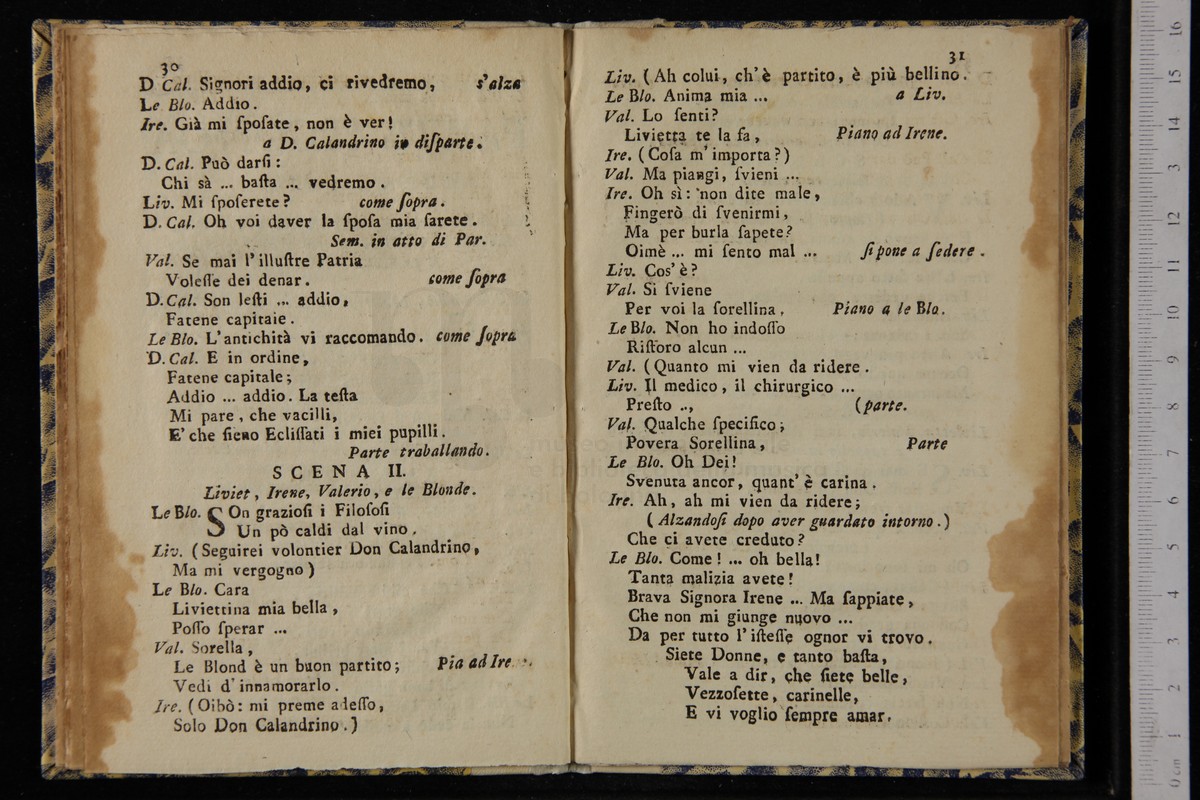 30
D Cal. Signori addio, ci rivedremo, s'alza
Le Blo. Addio.
Ire. Già mi ſpoſate, non è ver!
a D. Calandrino in diſparte.
D. Cal. Può darſi:
Chi sà ... baſta ... vedremo.
Liv. Mi ſpoſerete? come ſopra.
D. Cal. Oh voi daver la ſpoſa mia ſarete.
Sem. in atto di Par.
Val. Se mai l'illuſtre Patria
Voleſſe dei denar. come ſopra
D. Cal. Son leſti ... addio,
Fatene capitale.
Le Blo. L'antichità vi raccomando. come ſopra
D. Cal. E in ordine,
Fatene capitale;
Addio ... addio. La teſta
Mi pare, che vacilli,
E' che ſieno Ecliſſati i miei pupilli.
Parte traballando.
SCENA II.
Liviet, Irene, Valerio, e le Blonde.
Le Blo. SOn grazioſi i Filoſoſi
Un pò caldi dal vino.
Liv. (Seguirei volontier Don Calandrino,
Ma mi vergogno)
Le Blo. Cara
Liviettina mia bella,
Poſſo ſperar ...
Val. Sorella,
Le Blond è un buon partito; Pia ad Ire.
Vedi d'innamorarlo.
Ire. (Oibò: mi preme adeſſo,
Solo Don Calandrino.)
31
Liv. (Ah colui, ch'è partito, è più bellino.
Le Blo. Anima mia ... a Liv.
Val. Lo ſenti?
Livietta te la fa, Piano ad Irene.
Ire. (Coſa m'importa?)
Val. Ma piangi, ſvieni ...
Ire. Oh sì: non dite male,
Fingerò di ſvenirmi,
Ma per burla ſapete?
Oimè ... mi ſento mal ... ſi pone a ſedere.
Liv. Cos'è?
Val. Si ſviene
Per voi la ſorellina. Piano a le Blo.
Le Blo. Non ho indoſſo
Riſtoro alcun ...
Val. (Quanto mi vien da ridere.
Liv. Il medico, il chirurgico ...
Preſto .., (parte.
Val. Qualche ſpecifico;
Povera Sorellina, Parte
Le Blo. Oh Dei!
Svenuta ancor, quant'è carina.
Ire. Ah, ah mi vien da ridere;
(Alzandoſi dopo aver guardato intorno.)
Che ci avete creduto?
Le Blo. Come! ... oh bella!
Tanta malizia avete!
Brava Signora Irene ... Ma ſappiate,
Che non mi giunge nuovo ...
Da per tutto l'iſteſſe ognor vi trovo.
Siete Donne, e tanto baſta,
Vale a dir, che ſiete belle,
Vezzoſette, carinelle,
E vi voglio ſempre amar.